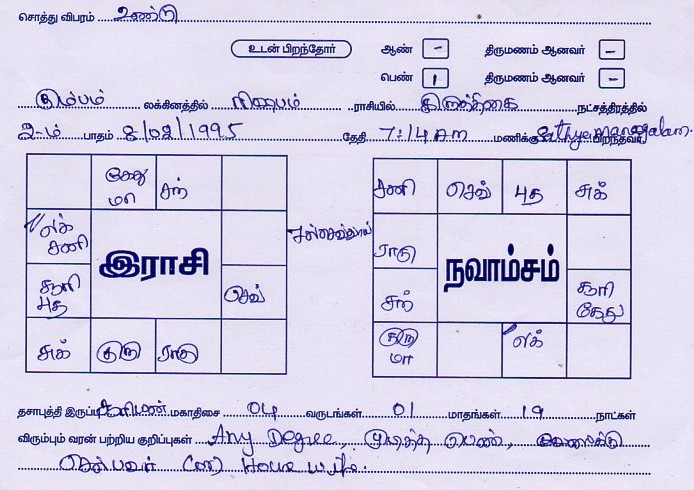 சொத்து விபரம் உண்டு
உடன் பிறந்தோர் ஆண் - திருமணம் ஆனவர் -
பெண் 1 திருமணம் ஆனவர் -
கும்பம் லக்கினத்தில் ரிஷபம் ராசியில் கிருத்திகை நட்சத்திரத்தில்
2-ம் பாதம் 8/02/1995 தேதி 7:14 AM மணிக்கு Sathyamangalam. பிறந்தவர்
கேது மா சந்
எக் சனி
சூரி புத
செவ்
சுக் குரு ராகு
இராசி
சனி செவ் புத சுக்
ராகு
சந்
சூரி கேது
குரு மா எக்
நவாம்சம்
தசாபுத்தி இருப்பு சூரியன் மகாதிசை 04 வருடங்கள் 01 மாதங்கள் 19 நாட்கள்
விரும்பும் வரன் பற்றிய குறிப்புகள் Any Degree, படித்த பெண், வேலைக்கு
செல்பவர் (or) House wife.